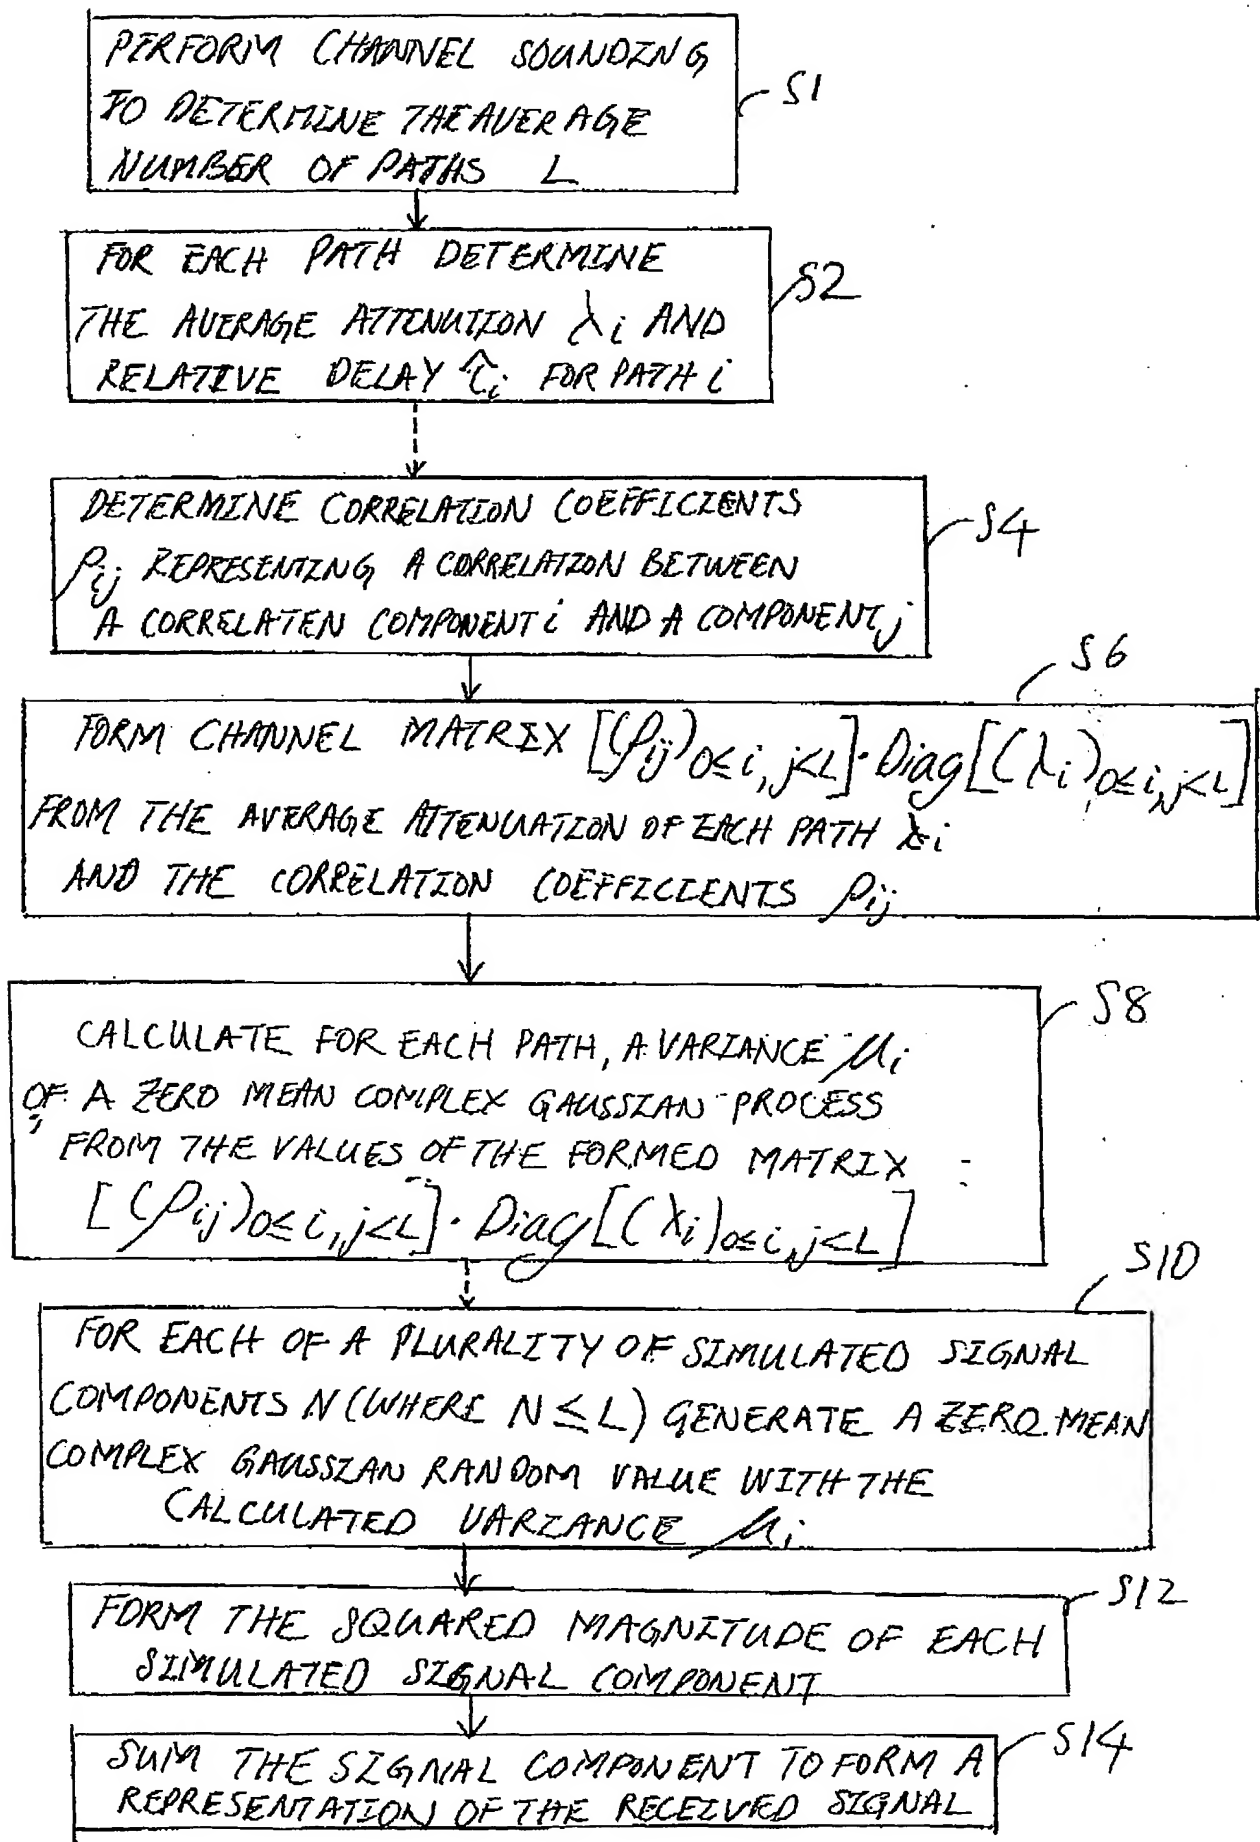 PERFORM CHANNEL SOUNDING
TO DETERMINE THE AVERAGE
NUMBER OF PATHS L
S1
FOR EACH PATH DETERMINE
THE AVERAGE ATTENUTION λi AND
RELATIVE DELAY τ̂i FOR PATH i
S2
DETERMINE CORRELATION COEFFICIENTS
ρij REPRESENTING A CORRELATION BETWEEN
A CORRELATEN COMPONENT i AND A COMPONENT j
S4
S6
FORM CHANNEL MATRIX [(ρij)0≤i,j<L]·Diag[(λi)0≤i,j<L]
FROM THE AVERAGE ATTENUATION OF EACH PATH λi
AND THE CORRELATION COEFFICIENTS ρij
S8
CALCULATE FOR EACH PATH, A VARIANCE μi
OF A ZERO MEAN COMPLEX GAUSSIAN PROCESS
FROM THE VALUES OF THE FORMED MATRIX :
[(ρij)0≤i,j<L]·Diag[(λi)0≤i,j<L]
S10
FOR EACH OF A PLURALITY OF SIMULATED SIGNAL
COMPONENTS N (WHERE N≤L) GENERATE A ZERO MEAN
COMPLEX GAUSSIAN RANDOM VALUE WITH THE
CALCULATED VARIANCE μi
S12
FORM THE SQUARED MAGNITUDE OF EACH
SIMULATED SIGNAL COMPONENT
S14
SUM THE SIGNAL COMPONENT TO FORM A
REPRESENTATION OF THE RECEIVED SIGNAL